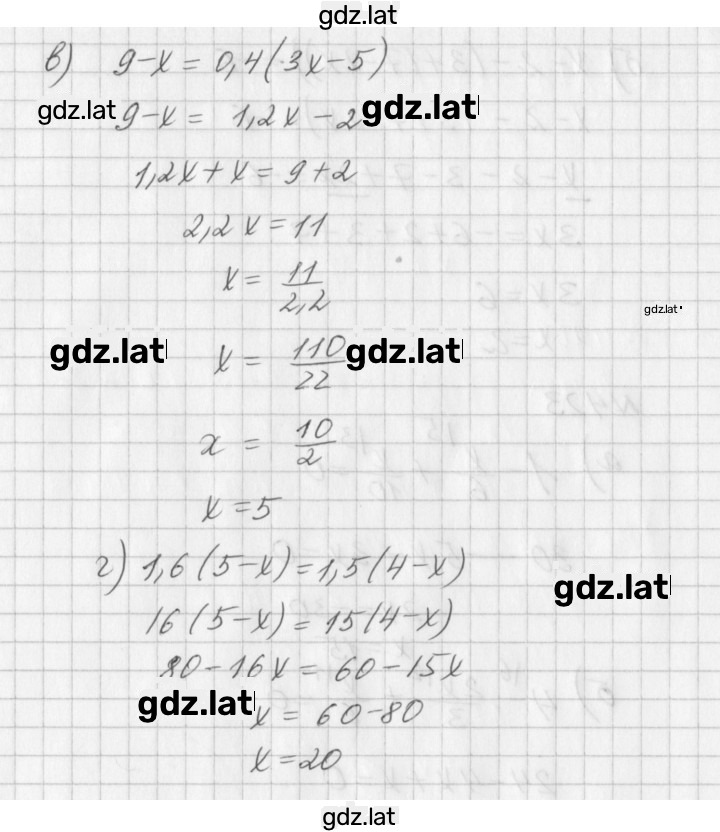 gdz.lat
в) 9-x = 0,4(3x-5)
gdz.lat 9-x = 1,2x - 2 gdz.lat
1,2x+x = 9+2
2,2x = 11
x = 11/2,2
gdz.lat
gdz.lat x = 110/22 gdz.lat
x = 10/2
x = 5
г) 1,6(5-x) = 1,5(4-x)
gdz.lat
16(5-x) = 15(4-x)
80-16x = 60-15x
gdz.lat x = 60-80
x = 20
gdz.lat